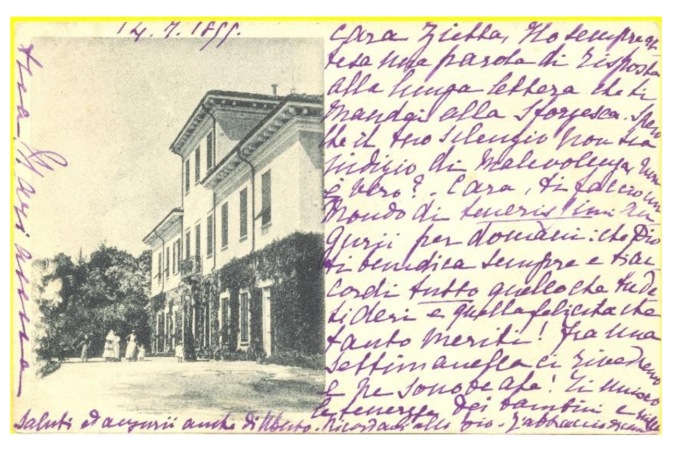 14. 7. 1899.
Cara Zietta, Ho sempre at
tesa una parola di risposta
alla lunga lettera che ti
mandai alla Sforzesca. Spero
che il tuo silenzio non sia
indizio di malevolenza, non
è vero? . Cara, ti faccio un
mondo di tenerissimi au
gurii per domani: che Dio
ti benedica sempre e ti ac
cordi tutto quello che tu de
sideri e quella felicità che
tanto meriti! Fra una
settimanella ci rivedremo
e ne sono beata! Ti unisco
le tenerezze dei bambini e mille
saluti ed augurii anche di Alberto. Ricordami allo zio. T'abbraccio
tua